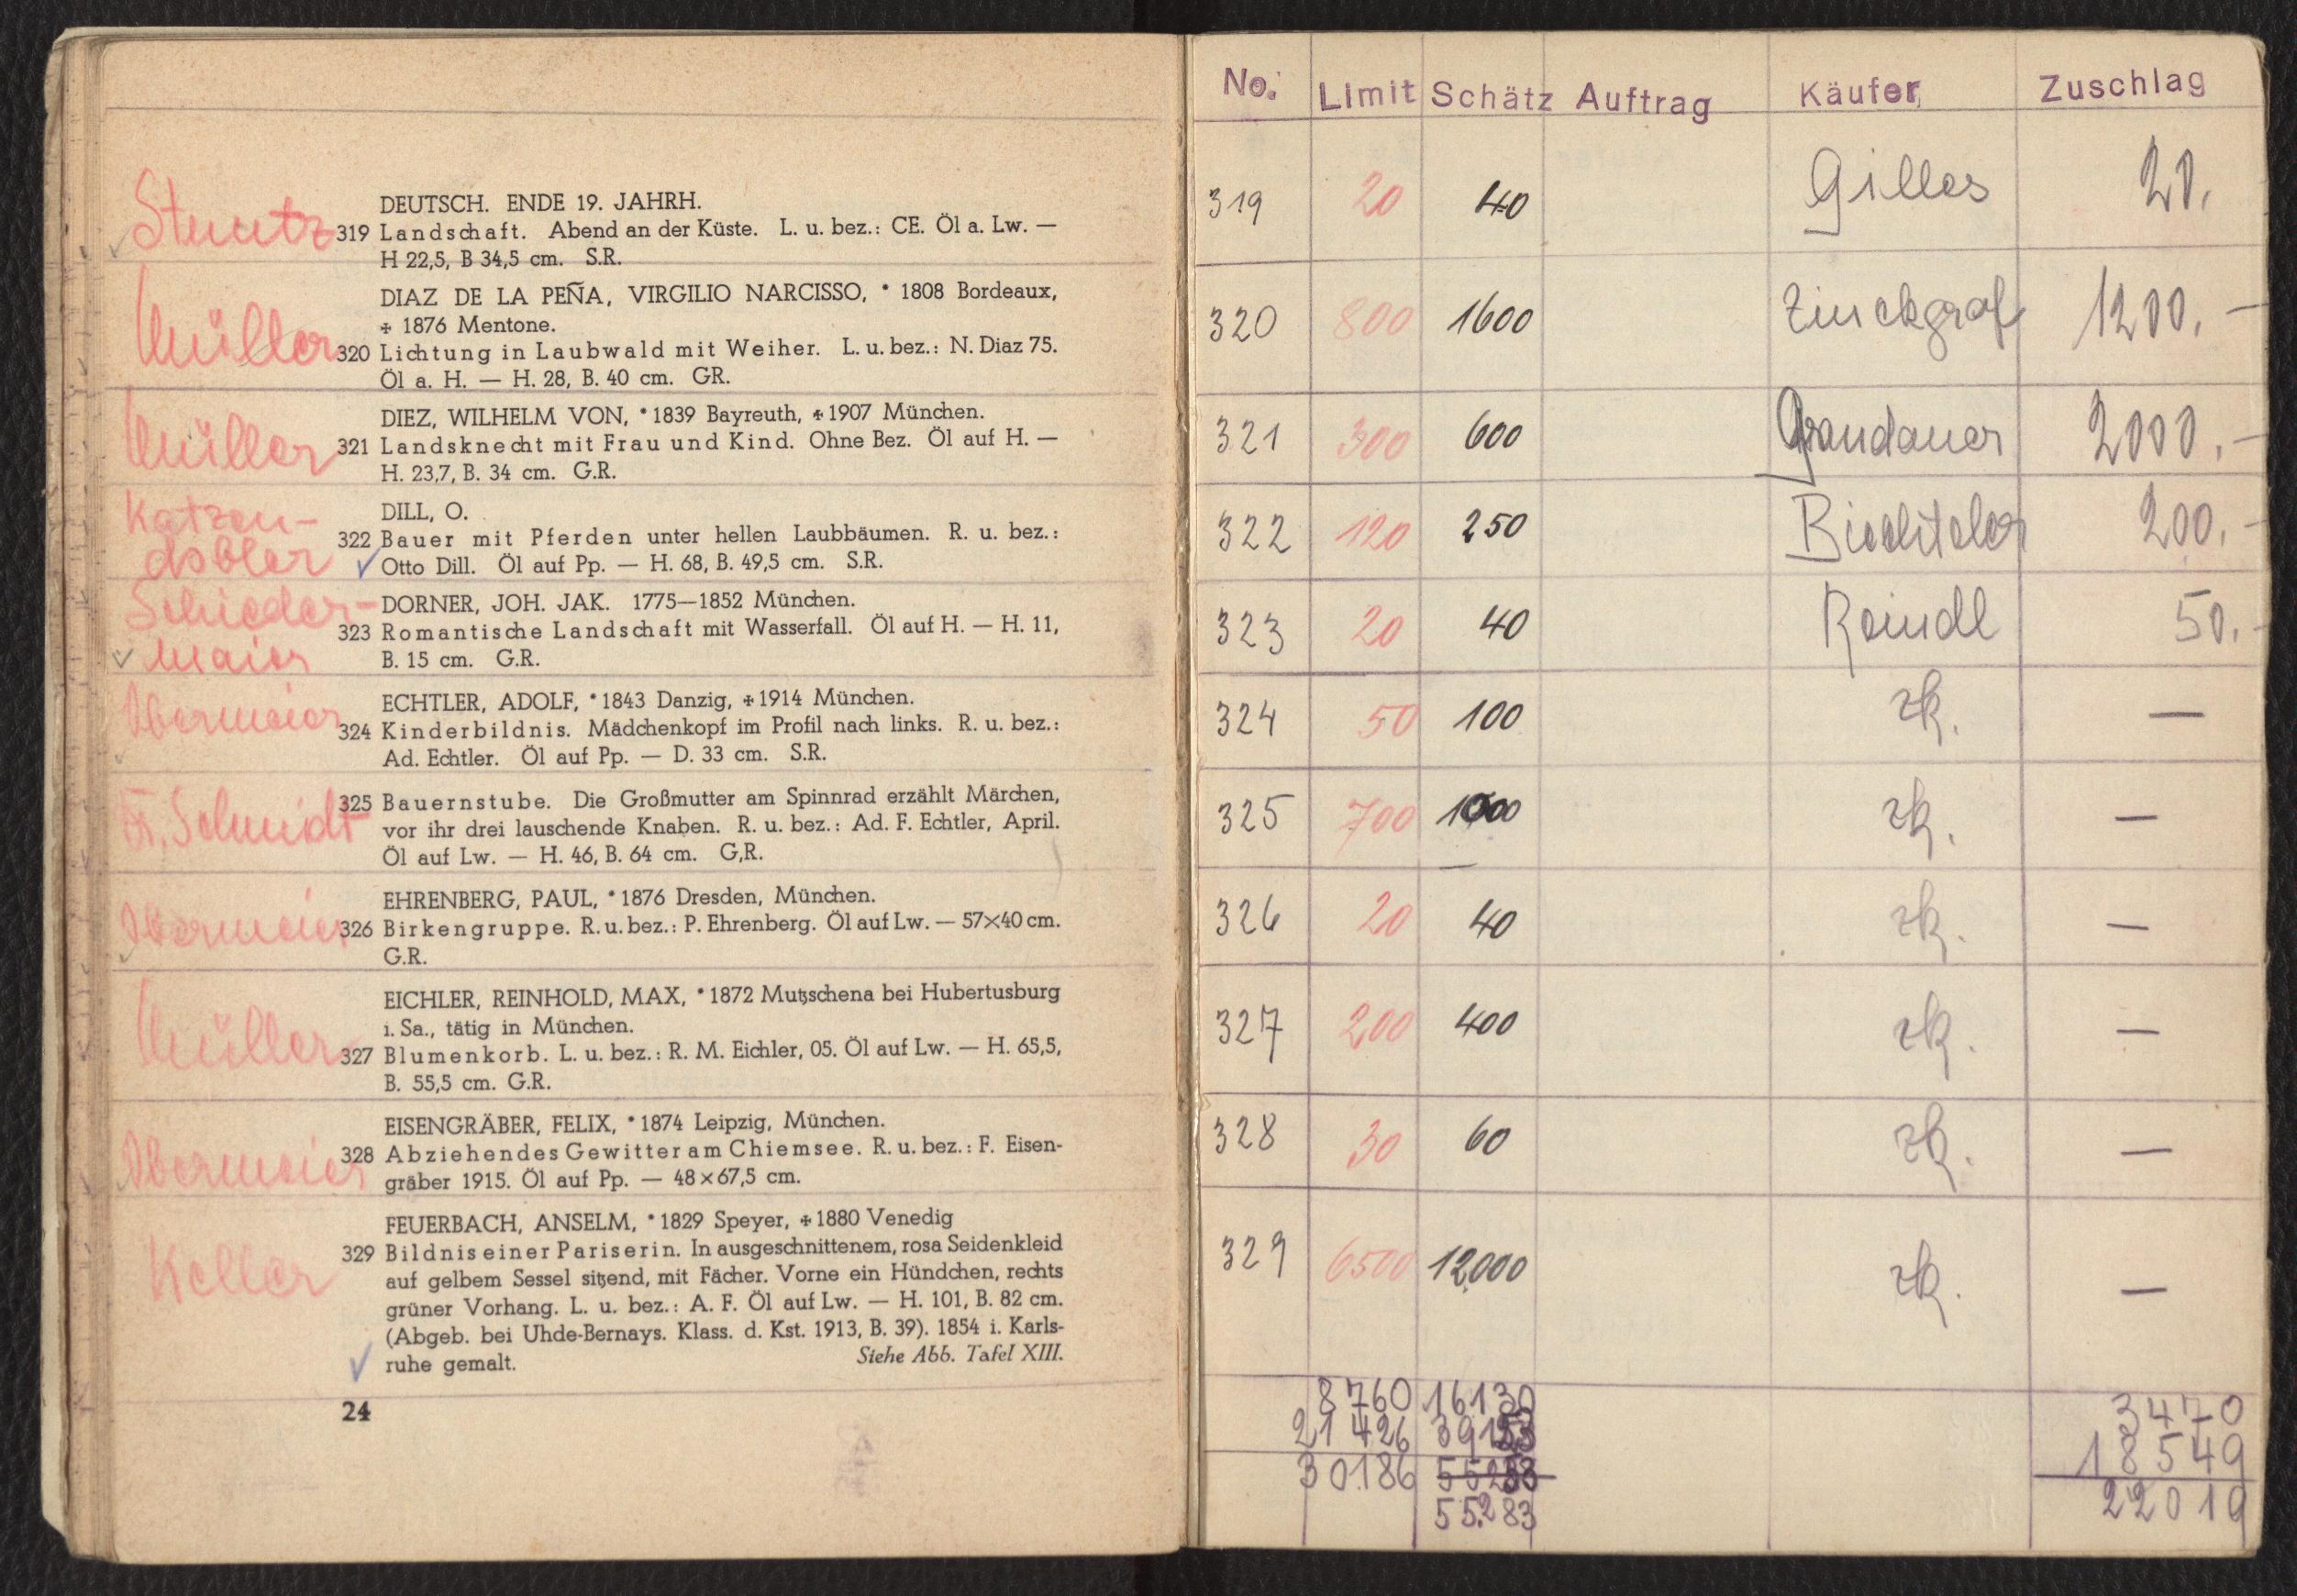 Stuntz
DEUTSCH. ENDE 19. JAHRH.
319 Landschaft. Abend an der Küste. L. u. bez.: CE. Öl a. Lw. —
H 22,5, B 34,5 cm. S.R.
Müller
DIAZ DE LA PEÑA, VIRGILIO NARCISSO, * 1808 Bordeaux,
✠ 1876 Mentone.
320 Lichtung in Laubwald mit Weiher. L. u. bez.: N. Diaz 75.
Öl a. H. — H. 28, B. 40 cm. GR.
Müller
DIEZ, WILHELM VON, * 1839 Bayreuth, ✠ 1907 München.
321 Landsknecht mit Frau und Kind. Ohne Bez. Öl auf H. —
H. 23,7, B. 34 cm. G.R.
Katzen-
dobler
DILL, O.
322 Bauer mit Pferden unter hellen Laubbäumen. R. u. bez.:
✓ Otto Dill. Öl auf Pp. — H. 68, B. 49,5 cm. S.R.
Schieder-
maier
DORNER, JOH. JAK. 1775—1852 München.
323 Romantische Landschaft mit Wasserfall. Öl auf H. — H. 11,
B. 15 cm. G.R.
Obermaier
ECHTLER, ADOLF, * 1843 Danzig, ✠ 1914 München.
324 Kinderbildnis. Mädchenkopf im Profil nach links. R. u. bez.:
Ad. Echtler. Öl auf Pp. — D. 33 cm. S.R.
Fr. Schmidt
325 Bauernstube. Die Großmutter am Spinnrad erzählt Märchen,
vor ihr drei lauschende Knaben. R. u. bez.: Ad. F. Echtler, April.
Öl auf Lw. — H. 46, B. 64 cm. G,R.
Obermaier
EHRENBERG, PAUL, * 1876 Dresden, München.
326 Birkengruppe. R. u. bez.: P. Ehrenberg. Öl auf Lw. — 57×40 cm.
G.R.
Müller
EICHLER, REINHOLD, MAX, * 1872 Mutzschena bei Hubertusburg
i. Sa., tätig in München.
327 Blumenkorb. L. u. bez.: R. M. Eichler, 05. Öl auf Lw. — H. 65,5,
B. 55,5 cm. G.R.
Obermaier
EISENGRÄBER, FELIX, * 1874 Leipzig, München.
328 Abziehendes Gewitter am Chiemsee. R. u. bez.: F. Eisen-
gräber 1915. Öl auf Pp. — 48×67,5 cm.
Keller
FEUERBACH, ANSELM, * 1829 Speyer, ✠ 1880 Venedig
329 Bildnis einer Pariserin. In ausgeschnittenem, rosa Seidenkleid
auf gelbem Sessel sitzend, mit Fächer. Vorne ein Hündchen, rechts
grüner Vorhang. L. u. bez.: A. F. Öl auf Lw. — H. 101, B. 82 cm.
(Abgeb. bei Uhde-Bernays. Klass. d. Kst. 1913, B. 39). 1854 i. Karls-
✓ ruhe gemalt. Siehe Abb. Tafel XIII.
24
No. Limit Schätz Auftrag Käufer Zuschlag
319 20 40 Gilles 20.
320 800 1600 Zinckgraf 1200.—
321 300 600 Grandauer 2000.—
322 120 250 Biechteler 200.—
323 20 40 Reindl 50.—
324 50 100 zk. —
325 700 1000 zk. —
326 20 40 zk. —
327 200 400 zk. —
328 30 60 zk. —
329 6500 12000 zk. —
8760 16130 3470
21426 39153 18549
30186 55283 22019
55.283